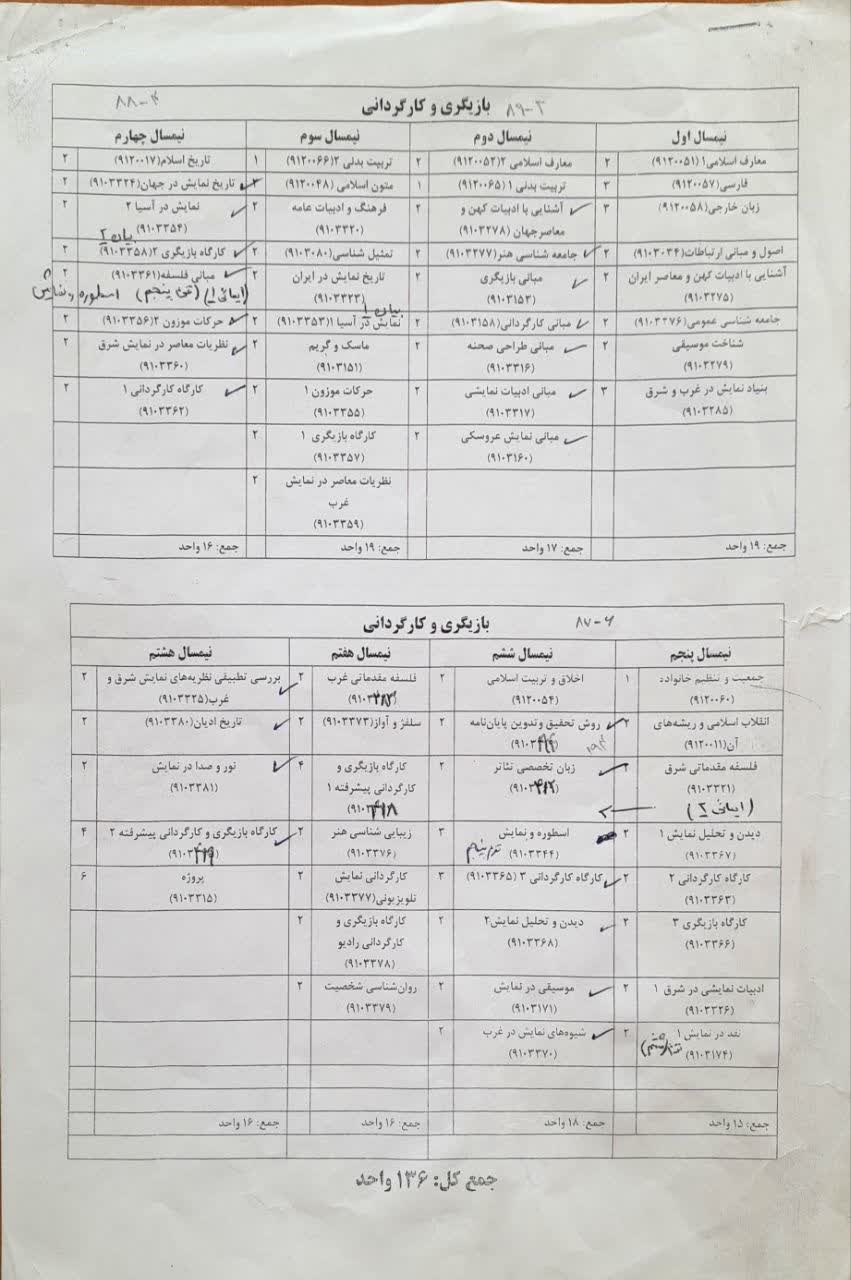 بازیگری و کارگردانی
۸۹-۲
۸۸-۴
نیمسال اول
نیمسال دوم
نیمسال سوم
نیمسال چهارم
معارف اسلامی۱ (۹۱۲۰۰۵۱) ۲
معارف اسلامی ۲(۹۱۲۰۰۵۲) ۲
تربیت بدلی ۲(۹۱۲۰۰۶۶) ۱
تاریخ اسلام(۹۱۲۰۰۱۷) ۲
فارسی(۹۱۲۰۰۵۷) ۳
تربیت بدنی ۱ (۹۱۲۰۰۶۵) ۱
متون اسلامی (۹۱۲۰۰۴۸) ۲
تاریخ نمایش در جهان(۹۱۰۳۳۲۴) ۲
زبان خارجی(۹۱۲۰۰۵۸) ۳
آشنایی با ادبیات کهن و
معاصرجهان (۹۱۰۳۲۷۸) ۲
فرهنگ و ادبیات عامه
(۹۱۰۳۳۲۰) ۲
نمایش در آسیا ۲
(۹۱۰۳۳۵۴) ۲
بیان ۲
اصول و مبانی ارتباطات(۹۱۰۳۰۳۴) ۲
جامعه شناسی هنر(۹۱۰۳۲۷۷) ۲
تمثیل شناسی(۹۱۰۳۰۸۰) ۲
کارگاه بازیگری ۲(۹۱۰۳۳۵۸) ۲
آشنایی با ادبیات کهن و معاصر ایران
(۹۱۰۳۲۷۵) ۲
مبانی بازیگری
(۹۱۰۳۱۵۳) ۲
تاریخ نمایش در ایران
(۹۱۰۳۳۲۳) ۲
مبانی فلسفه(۹۱۰۳۳۶۱) ۲
(ایرانی ۱) (ترم پنجم) اسطوره و نمایش
بیان ۱
جامعه شناسی عمومی(۹۱۰۳۲۷۶) ۲
مبانی کارگردانی(۹۱۰۳۱۵۸) ۲
نمایش در آسیا ۱(۹۱۰۳۳۵۳) ۲
حرکات موزون ۲(۹۱۰۳۳۵۶) ۲
شناخت موسیقی
(۹۱۰۳۲۷۹) ۲
مبانی طراحی صحنه
(۹۱۰۳۳۱۶) ۲
ماسک و گریم
(۹۱۰۳۱۵۱) ۲
نظریات معاصر در نمایش شرق
(۹۱۰۳۳۶۰) ۲
بنیاد نمایش در غرب و شرق
(۹۱۰۳۲۸۵) ۳
مبانی ادبیات نمایشی
(۹۱۰۳۳۱۷) ۲
حرکات موزون ۱
(۹۱۰۳۳۵۵) ۲
کارگاه کارگردانی ۱
(۹۱۰۳۳۶۲) ۲
مبانی نمایش عروسکی
(۹۱۰۳۱۶۰) ۲
کارگاه بازیگری ۱
(۹۱۰۳۳۵۷) ۲
نظریات معاصر در نمایش
غرب
(۹۱۰۳۳۵۹) ۲
جمع: ۱۹ واحد
جمع: ۱۷ واحد
جمع: ۱۹ واحد
جمع: ۱۶ واحد
بازیگری و کارگردانی
۸۷-۶
نیمسال پنجم
نیمسال ششم
نیمسال هفتم
نیمسال هشتم
جمعیت و تنظیم خانواده
(۹۱۲۰۰۶۰) ۱
اخلاق و تربیت اسلامی
(۹۱۲۰۰۵۴) ۲
فلسفه مقدماتی غرب ۲
بررسی تطبیقی نظریه‌های نمایش شرق و
غرب(۹۱۰۳۳۲۵) ۲
انقلاب اسلامی و ریشه‌های
آن(۹۱۲۰۰۱۱) ۲
روش تحقیق وتدوین پایان‌نامه ۲
سلفژ و آواز(۹۱۰۳۳۷۳) ۲
تاریخ ادیان(۹۱۰۳۳۸۰) ۲
فلسفه مقدماتی شرق
(۹۱۰۳۳۲۱) ۲
(ایرانی ۲)
زبان تخصصی تئاتر ۲
کارگاه بازیگری و
کارگردانی پیشرفته ۱ ۴
نور و صدا در نمایش
(۹۱۰۳۳۸۱) ۲
دیدن و تحلیل نمایش ۱
(۹۱۰۳۳۶۷) ۲
اسطوره و نمایش
(۹۱۰۳۳۴۴) ۳
ترم پنجم
زیبایی شناسی هنر
(۹۱۰۳۳۷۶) ۲
کارگاه بازیگری و کارگردانی پیشرفته ۲ ۴
کارگاه کارگردانی ۲
(۹۱۰۳۳۶۳) ۲
کارگاه کارگردانی ۳ (۹۱۰۳۳۶۵) ۳
کارگردانی نمایش
تلویزیونی(۹۱۰۳۳۷۷) ۲
پروژه
(۹۱۰۳۳۱۵) ۶
کارگاه بازیگری ۳
(۹۱۰۳۳۶۶) ۲
دیدن و تحلیل نمایش۲
(۹۱۰۳۳۶۸) ۲
کارگاه بازیگری و
کارگردانی رادیو
(۹۱۰۳۳۷۸) ۲
ادبیات نمایشی در شرق ۱
(۹۱۰۳۳۲۶) ۲
موسیقی در نمایش
(۹۱۰۳۱۷۱) ۲
روان‌شناسی شخصیت
(۹۱۰۳۳۷۹) ۲
نقد در نمایش ۱
(۹۱۰۳۱۷۴) ۲
شیوه‌های نمایش در غرب
(۹۱۰۳۳۷۰) ۲
جمع: ۱۵ واحد
جمع: ۱۸ واحد
جمع: ۱۶ واحد
جمع: ۱۶ واحد
جمع کل: ۱۳۶ واحد